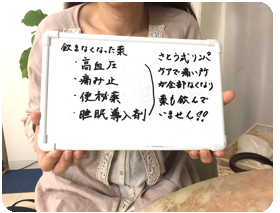 飲まなくなった薬
・高血圧
・痛み止
・便秘薬
・睡眠導入剤
さとう式リンパ
ケアで痛い所
が全部なくなり
薬も飲んで
いません!!